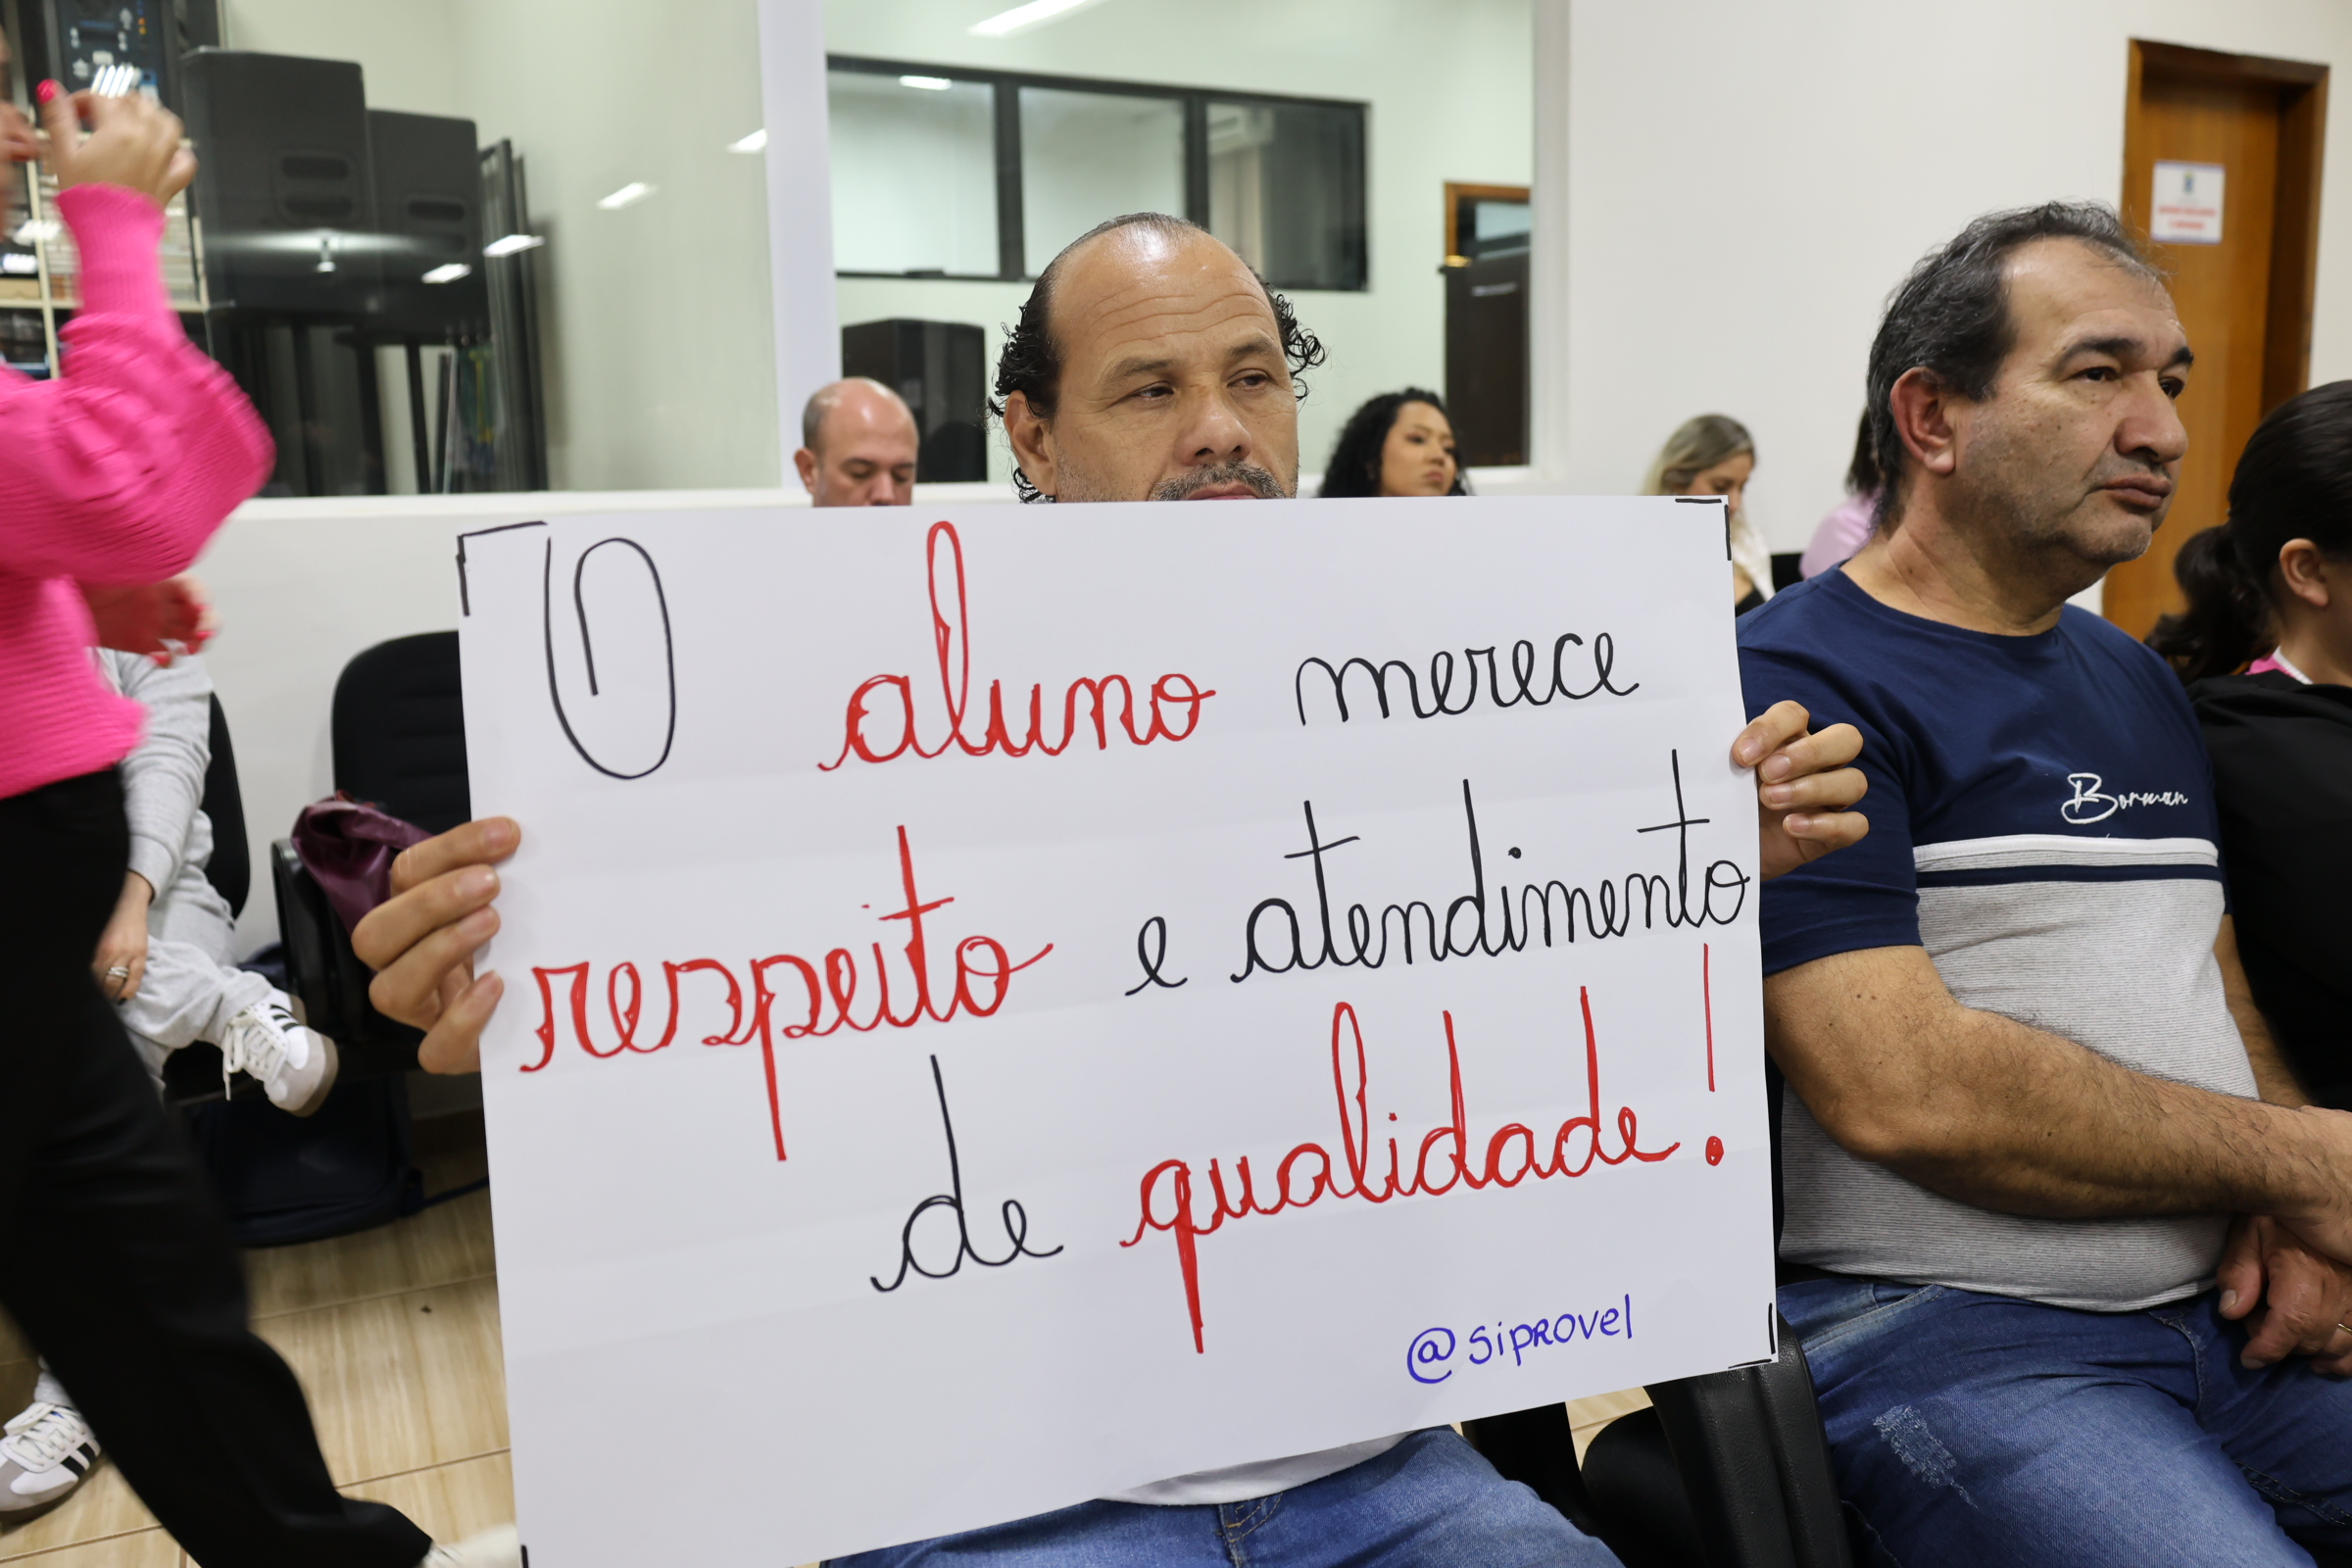 O aluno merece
respeito e atendimento
de qualidade!
@siprovel
Borman